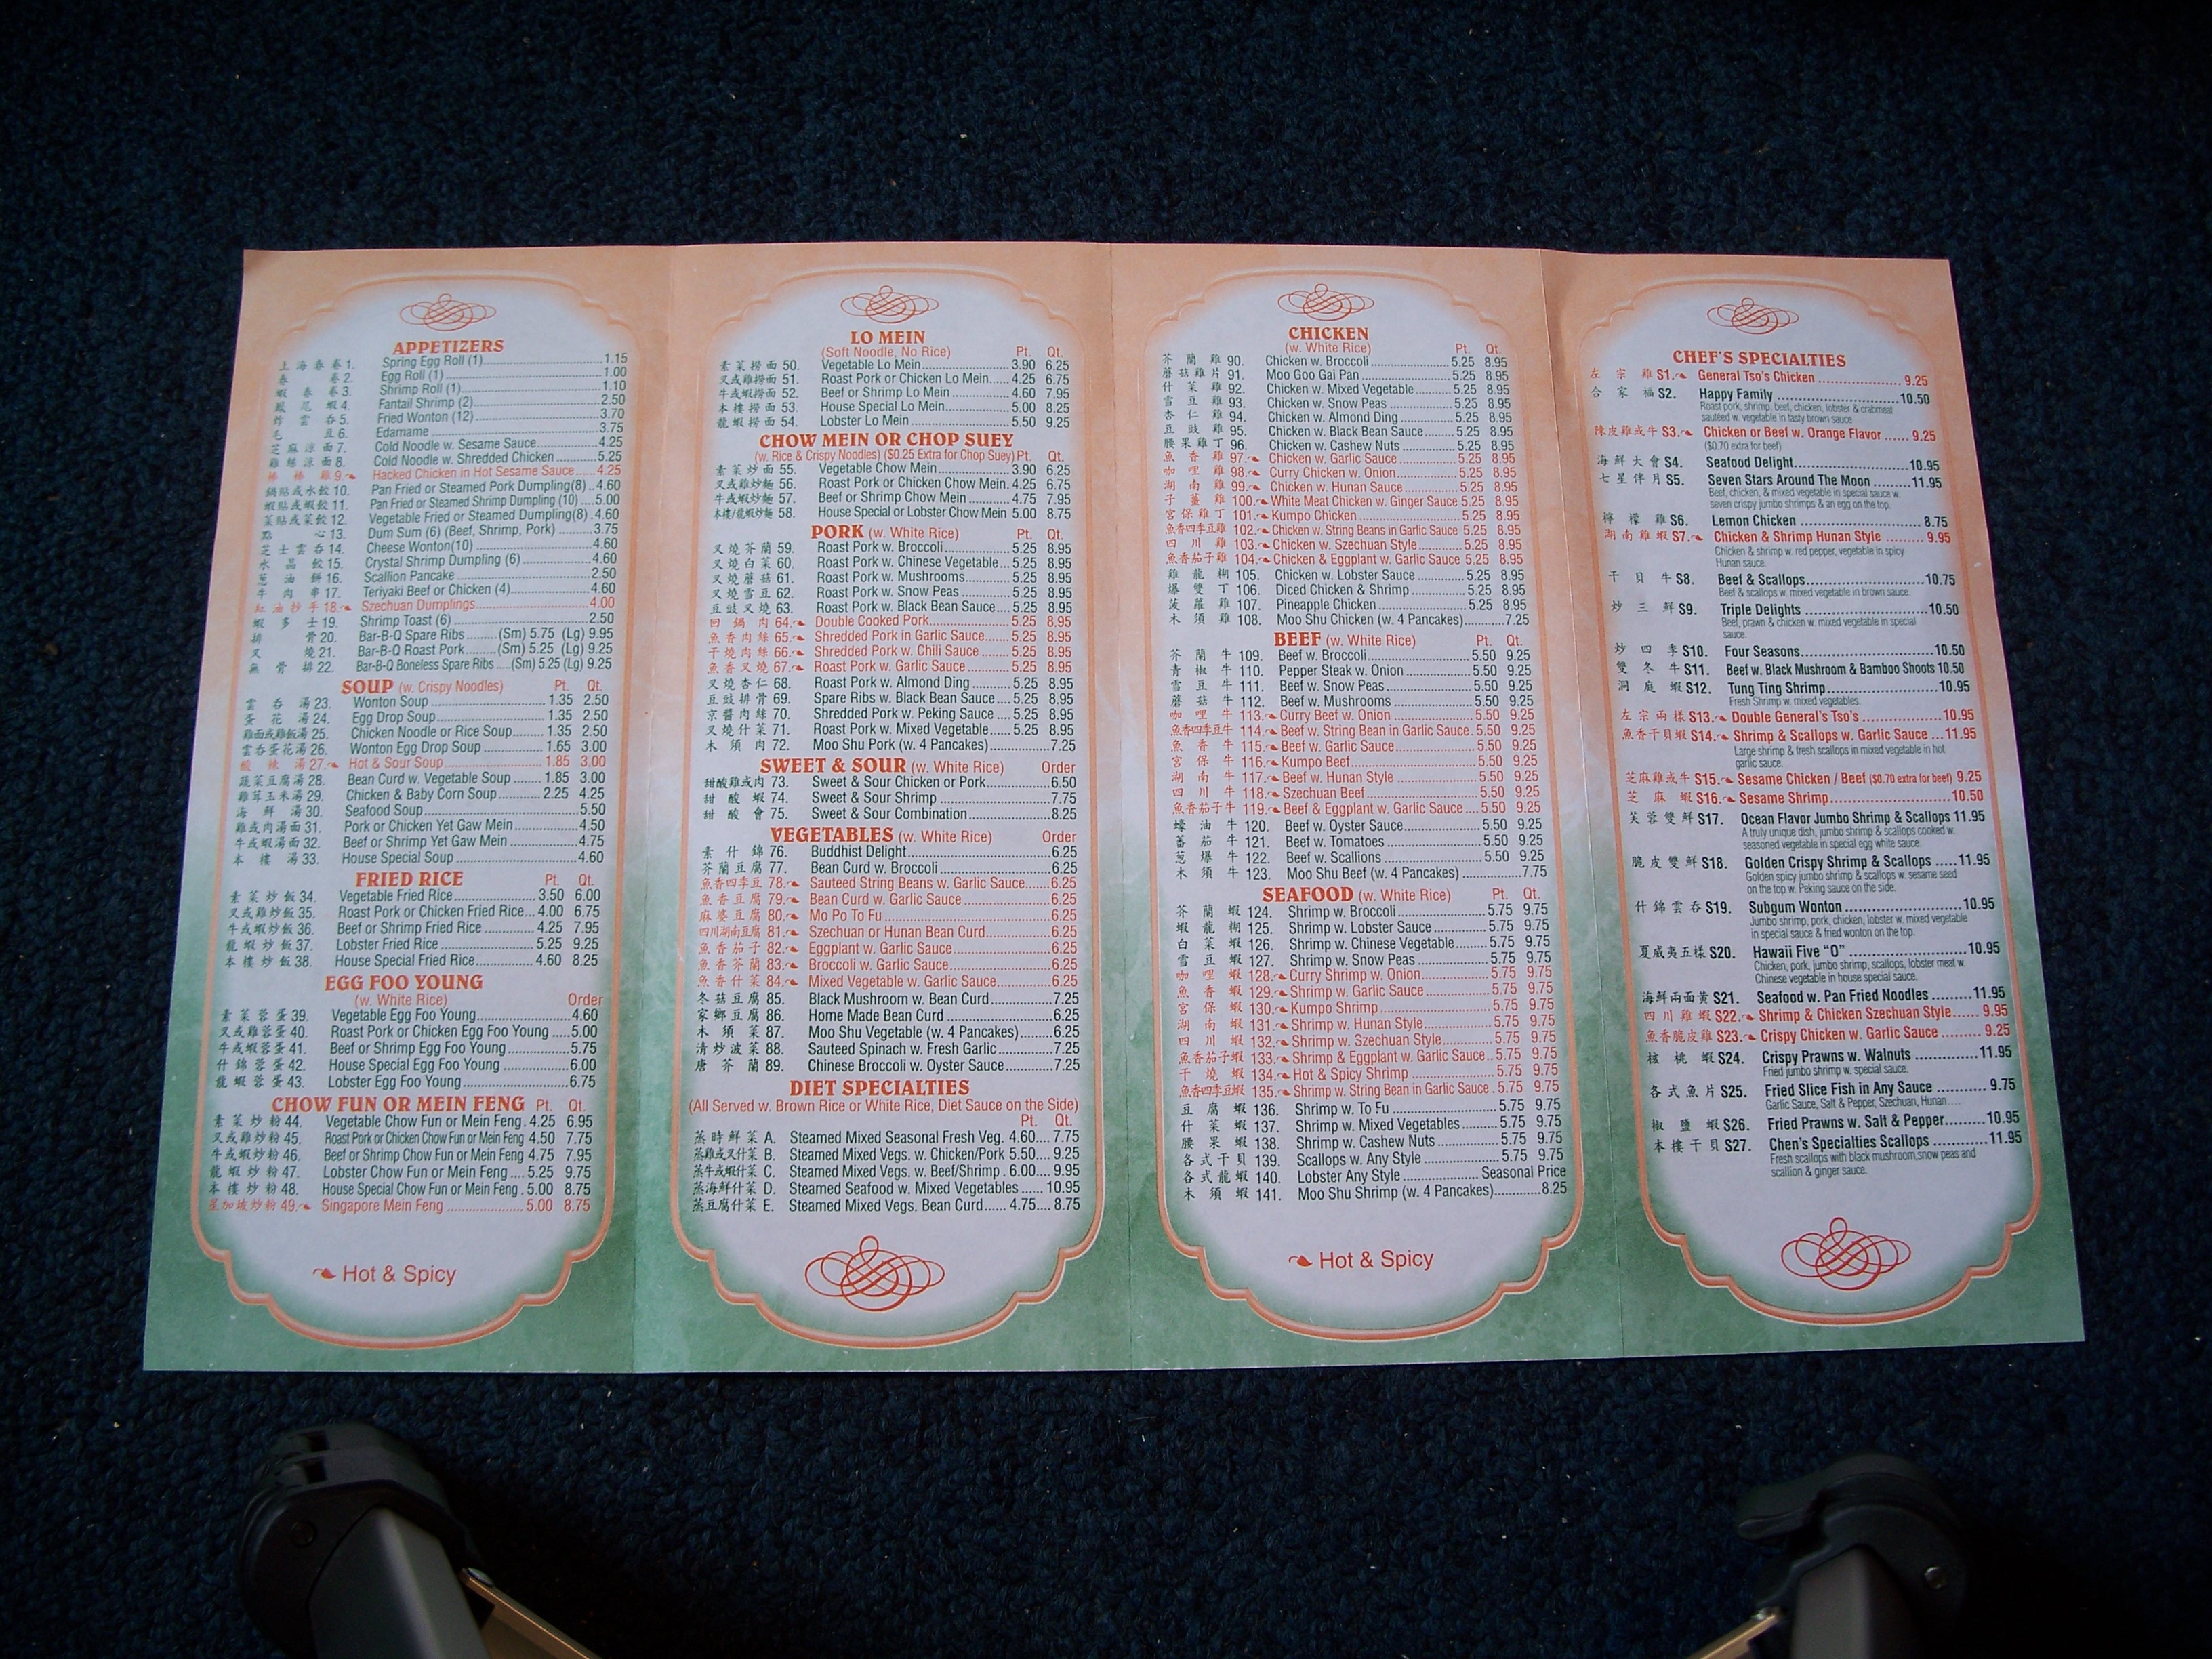 APPETIZERS
上海春卷 1. Spring Egg Roll (1) 1.15
春卷 2. Egg Roll (1) 1.00
蝦春卷 3. Shrimp Roll (1) 1.10
鳳尾蝦 4. Fantail Shrimp (2) 2.50
炸雲吞 5. Fried Wonton (12) 3.70
毛豆 6. Edamame 3.75
芝麻涼面 7. Cold Noodle w. Sesame Sauce 4.25
雞絲涼面 8. Cold Noodle w. Shredded Chicken 5.25
棒棒雞 9. Hacked Chicken in Hot Sesame Sauce 4.25
鍋貼或水餃 10. Pan Fried or Steamed Pork Dumpling(8) 4.60
蝦貼或蝦餃 11. Pan Fried or Steamed Shrimp Dumpling (10) 5.00
菜貼或菜餃 12. Vegetable Fried or Steamed Dumpling(8) 4.60
點心 13. Dum Sum (6) (Beef, Shrimp, Pork) 3.75
芝士雲吞 14. Cheese Wonton(10) 4.60
水晶餃 15. Crystal Shrimp Dumpling (6) 4.60
蔥油餅 16. Scallion Pancake 2.50
牛肉串 17. Teriyaki Beef or Chicken (4) 4.60
紅油抄手 18. Szechuan Dumplings 4.00
蝦多士 19. Shrimp Toast (6) 2.50
排骨 20. Bar-B-Q Spare Ribs (Sm) 5.75 (Lg) 9.95
叉燒 21. Bar-B-Q Roast Pork (Sm) 5.25 (Lg) 9.25
無骨排 22. Bar-B-Q Boneless Spare Ribs (Sm) 5.25 (Lg) 9.25
SOUP (w. Crispy Noodles) Pt. Qt.
雲吞湯 23. Wonton Soup 1.35 2.50
蛋花湯 24. Egg Drop Soup 1.35 2.50
雞面或雞飯湯 25. Chicken Noodle or Rice Soup 1.35 2.50
雲吞蛋花湯 26. Wonton Egg Drop Soup 1.65 3.00
酸辣湯 27. Hot & Sour Soup 1.85 3.00
蔬菜豆腐湯 28. Bean Curd w. Vegetable Soup 1.85 3.00
雞茸玉米湯 29. Chicken & Baby Corn Soup 2.25 4.25
海鮮湯 30. Seafood Soup 5.50
雞或肉湯面 31. Pork or Chicken Yet Gaw Mein 4.50
牛或蝦湯面 32. Beef or Shrimp Yet Gaw Mein 4.75
本樓湯 33. House Special Soup 4.60
FRIED RICE Pt. Qt.
素菜炒飯 34. Vegetable Fried Rice 3.50 6.00
叉或雞炒飯 35. Roast Pork or Chicken Fried Rice 4.00 6.75
牛或蝦炒飯 36. Beef or Shrimp Fried Rice 4.25 7.95
龍蝦炒飯 37. Lobster Fried Rice 5.25 9.25
本樓炒飯 38. House Special Fried Rice 4.60 8.25
EGG FOO YOUNG
(w. White Rice) Order
素菜蓉蛋 39. Vegetable Egg Foo Young 4.60
叉或雞蓉蛋 40. Roast Pork or Chicken Egg Foo Young 5.00
牛或蝦蓉蛋 41. Beef or Shrimp Egg Foo Young 5.75
什錦蓉蛋 42. House Special Egg Foo Young 6.00
龍蝦蓉蛋 43. Lobster Egg Foo Young 6.75
CHOW FUN OR MEIN FENG Pt. Qt.
素菜炒粉 44. Vegetable Chow Fun or Mein Feng 4.25 6.95
叉或雞炒粉 45. Roast Pork or Chicken Chow Fun or Mein Feng 4.50 7.75
牛或蝦炒粉 46. Beef or Shrimp Chow Fun or Mein Feng 4.75 7.95
龍蝦炒粉 47. Lobster Chow Fun or Mein Feng 5.25 9.75
本樓炒粉 48. House Special Chow Fun or Mein Feng 5.00 8.75
星加坡炒粉 49. Singapore Mein Feng 5.00 8.75
Hot & Spicy
LO MEIN
(Soft Noodle, No Rice) Pt. Qt.
素菜撈面 50. Vegetable Lo Mein 3.90 6.25
叉或雞撈面 51. Roast Pork or Chicken Lo Mein 4.25 6.75
牛或蝦撈面 52. Beef or Shrimp Lo Mein 4.60 7.95
本樓撈面 53. House Special Lo Mein 5.00 8.25
龍蝦撈面 54. Lobster Lo Mein 5.50 9.25
CHOW MEIN OR CHOP SUEY
(w. Rice & Crispy Noodles) ($0.25 Extra for Chop Suey) Pt. Qt.
素菜炒面 55. Vegetable Chow Mein 3.90 6.25
叉或雞炒麵 56. Roast Pork or Chicken Chow Mein 4.25 6.75
牛或蝦炒麵 57. Beef or Shrimp Chow Mein 4.75 7.95
本樓/龍蝦炒麵 58. House Special or Lobster Chow Mein 5.00 8.75
PORK (w. White Rice) Pt. Qt.
叉燒芥蘭 59. Roast Pork w. Broccoli 5.25 8.95
叉燒白菜 60. Roast Pork w. Chinese Vegetable 5.25 8.95
叉燒蘑菇 61. Roast Pork w. Mushrooms 5.25 8.95
叉燒雪豆 62. Roast Pork w. Snow Peas 5.25 8.95
豆豉叉燒 63. Roast Pork w. Black Bean Sauce 5.25 8.95
回鍋肉 64. Double Cooked Pork 5.25 8.95
魚香肉絲 65. Shredded Pork in Garlic Sauce 5.25 8.95
干燒肉絲 66. Shredded Pork w. Chili Sauce 5.25 8.95
魚香叉燒 67. Roast Pork w. Garlic Sauce 5.25 8.95
叉燒杏仁 68. Roast Pork w. Almond Ding 5.25 8.95
豆豉排骨 69. Spare Ribs w. Black Bean Sauce 5.25 8.95
京醬肉絲 70. Shredded Pork w. Peking Sauce 5.25 8.95
叉燒什菜 71. Roast Pork w. Mixed Vegetable 5.25 8.95
木須肉 72. Moo Shu Pork (w. 4 Pancakes) 7.25
SWEET & SOUR (w. White Rice) Order
甜酸雞或肉 73. Sweet & Sour Chicken or Pork 6.50
甜酸蝦 74. Sweet & Sour Shrimp 7.75
甜酸會 75. Sweet & Sour Combination 8.25
VEGETABLES (w. White Rice) Order
素什錦 76. Buddhist Delight 6.25
芥蘭豆腐 77. Bean Curd w. Broccoli 6.25
魚香四季豆 78. Sauteed String Beans w. Garlic Sauce 6.25
魚香豆腐 79. Bean Curd w. Garlic Sauce 6.25
麻婆豆腐 80. Mo Po To Fu 6.25
四川湖南豆腐 81. Szechuan or Hunan Bean Curd 6.25
魚香茄子 82. Eggplant w. Garlic Sauce 6.25
魚香芥蘭 83. Broccoli w. Garlic Sauce 6.25
魚香什菜 84. Mixed Vegetable w. Garlic Sauce 6.25
冬菇豆腐 85. Black Mushroom w. Bean Curd 7.25
家鄉豆腐 86. Home Made Bean Curd 6.25
木須菜 87. Moo Shu Vegetable (w. 4 Pancakes) 6.25
清炒波菜 88. Sauteed Spinach w. Fresh Garlic 7.25
唐芥蘭 89. Chinese Broccoli w. Oyster Sauce 7.25
DIET SPECIALTIES
(All Served w. Brown Rice or White Rice, Diet Sauce on the Side)
Pt. Qt.
蒸時鮮菜 A. Steamed Mixed Seasonal Fresh Veg. 4.60 7.75
蒸雞或叉什菜 B. Steamed Mixed Vegs. w. Chicken/Pork 5.50 9.25
蒸牛或蝦什菜 C. Steamed Mixed Vegs. w. Beef/Shrimp 6.00 9.95
蒸海鮮什菜 D. Steamed Seafood w. Mixed Vegetables 10.95
蒸豆腐什菜 E. Steamed Mixed Vegs. Bean Curd 4.75 8.75
CHICKEN
(w. White Rice) Pt. Qt.
芥蘭雞 90. Chicken w. Broccoli 5.25 8.95
蘑菇雞片 91. Moo Goo Gai Pan 5.25 8.95
什菜雞 92. Chicken w. Mixed Vegetable 5.25 8.95
雪豆雞 93. Chicken w. Snow Peas 5.25 8.95
杏仁雞 94. Chicken w. Almond Ding 5.25 8.95
豆豉雞 95. Chicken w. Black Bean Sauce 5.25 8.95
腰果雞丁 96. Chicken w. Cashew Nuts 5.25 8.95
魚香雞 97. Chicken w. Garlic Sauce 5.25 8.95
咖哩雞 98. Curry Chicken w. Onion 5.25 8.95
湖南雞 99. Chicken w. Hunan Sauce 5.25 8.95
子薑雞 100. White Meat Chicken w. Ginger Sauce 5.25 8.95
宮保雞丁 101. Kumpo Chicken 5.25 8.95
魚香四季豆雞 102. Chicken w. String Beans in Garlic Sauce 5.25 8.95
四川雞 103. Chicken w. Szechuan Style 5.25 8.95
魚香茄子雞 104. Chicken & Eggplant w. Garlic Sauce 5.25 8.95
雞龍糊 105. Chicken w. Lobster Sauce 5.25 8.95
爆雙丁 106. Diced Chicken & Shrimp 5.25 8.95
菠蘿雞 107. Pineapple Chicken 5.25 8.95
木須雞 108. Moo Shu Chicken (w. 4 Pancakes) 7.25
BEEF (w. White Rice) Pt. Qt.
芥蘭牛 109. Beef w. Broccoli 5.50 9.25
青椒牛 110. Pepper Steak w. Onion 5.50 9.25
雪豆牛 111. Beef w. Snow Peas 5.50 9.25
蘑菇牛 112. Beef w. Mushrooms 5.50 9.25
咖哩牛 113. Curry Beef w. Onion 5.50 9.25
魚香四季豆牛 114. Beef w. String Bean in Garlic Sauce 5.50 9.25
魚香牛 115. Beef w. Garlic Sauce 5.50 9.25
宮保牛 116. Kumpo Beef 5.50 9.25
湖南牛 117. Beef w. Hunan Style 5.50 9.25
四川牛 118. Szechuan Beef 5.50 9.25
魚香茄子牛 119. Beef & Eggplant w. Garlic Sauce 5.50 9.25
蠔油牛 120. Beef w. Oyster Sauce 5.50 9.25
蕃茄牛 121. Beef w. Tomatoes 5.50 9.25
蔥爆牛 122. Beef w. Scallions 5.50 9.25
木須牛 123. Moo Shu Beef (w. 4 Pancakes) 7.75
SEAFOOD (w. White Rice) Pt. Qt.
芥蘭蝦 124. Shrimp w. Broccoli 5.75 9.75
蝦龍糊 125. Shrimp w. Lobster Sauce 5.75 9.75
白菜蝦 126. Shrimp w. Chinese Vegetable 5.75 9.75
雪豆蝦 127. Shrimp w. Snow Peas 5.75 9.75
咖哩蝦 128. Curry Shrimp w. Onion 5.75 9.75
魚香蝦 129. Shrimp w. Garlic Sauce 5.75 9.75
宮保蝦 130. Kumpo Shrimp 5.75 9.75
湖南蝦 131. Shrimp w. Hunan Style 5.75 9.75
四川蝦 132. Shrimp w. Szechuan Style 5.75 9.75
魚香茄子蝦 133. Shrimp & Eggplant w. Garlic Sauce 5.75 9.75
干燒蝦 134. Hot & Spicy Shrimp 5.75 9.75
魚香四季豆蝦 135. Shrimp w. String Bean in Garlic Sauce 5.75 9.75
豆腐蝦 136. Shrimp w. To Fu 5.75 9.75
什菜蝦 137. Shrimp w. Mixed Vegetables 5.75 9.75
腰果蝦 138. Shrimp w. Cashew Nuts 5.75 9.75
各式干貝 139. Scallops w. Any Style 5.75 9.75
各式龍蝦 140. Lobster Any Style Seasonal Price
木須蝦 141. Moo Shu Shrimp (w. 4 Pancakes) 8.25
Hot & Spicy
CHEF'S SPECIALTIES
左宗雞 S1. General Tso's Chicken 9.25
合家福 S2. Happy Family 10.50
Roast pork, shrimp, beef, chicken, lobster & crabmeat
sautéed w. vegetable in tasty brown sauce
陳皮雞或牛 S3. Chicken or Beef w. Orange Flavor 9.25
($0.70 extra for beef)
海鮮大會 S4. Seafood Delight 10.95
七星伴月 S5. Seven Stars Around The Moon 11.95
Beef, chicken, & mixed vegetable in special sauce w.
seven crispy jumbo shrimps & an egg on the top.
檸檬雞 S6. Lemon Chicken 8.75
湖南雞蝦 S7. Chicken & Shrimp Hunan Style 9.95
Chicken & shrimp w. red pepper, vegetable in spicy
Hunan sauce.
干貝牛 S8. Beef & Scallops 10.75
Beef & scallops w. mixed vegetable in brown sauce.
炒三鮮 S9. Triple Delights 10.50
Beef, prawn & chicken w. mixed vegetable in special
sauce.
炒四季 S10. Four Seasons 10.50
雙冬牛 S11. Beef w. Black Mushroom & Bamboo Shoots 10.50
洞庭蝦 S12. Tung Ting Shrimp 10.95
Fresh Shrimp w. mixed vegetables.
左宗兩樣 S13. Double General's Tso's 10.95
魚香干貝蝦 S14. Shrimp & Scallops w. Garlic Sauce 11.95
Large shrimp & fresh scallops in mixed vegetable in hot
garlic sauce.
芝麻雞或牛 S15. Sesame Chicken / Beef ($0.70 extra for beef) 9.25
芝麻蝦 S16. Sesame Shrimp 10.50
芙蓉雙鮮 S17. Ocean Flavor Jumbo Shrimp & Scallops 11.95
A truly unique dish, jumbo shrimp & scallops cooked w.
seasoned vegetable in special egg white sauce.
脆皮雙鮮 S18. Golden Crispy Shrimp & Scallops 11.95
Golden spicy jumbo shrimp & scallops w. sesame seed
on the top w. Peking sauce on the side.
什錦雲吞 S19. Subgum Wonton 10.95
Jumbo shrimp, pork, chicken, lobster w. mixed vegetable
in special sauce & fried wonton on the top.
夏威夷五樣 S20. Hawaii Five "O" 10.95
Chicken, pork, jumbo shrimp, scallops, lobster meat w.
Chinese vegetable in house special sauce.
海鮮兩面黃 S21. Seafood w. Pan Fried Noodles 11.95
四川雞蝦 S22. Shrimp & Chicken Szechuan Style 9.95
魚香脆皮雞 S23. Crispy Chicken w. Garlic Sauce 9.25
核桃蝦 S24. Crispy Prawns w. Walnuts 11.95
Fried jumbo shrimp w. special sauce.
各式魚片 S25. Fried Slice Fish in Any Sauce 9.75
Garlic Sauce, Salt & Pepper, Szechuan, Hunan....
椒鹽蝦 S26. Fried Prawns w. Salt & Pepper 10.95
本樓干貝 S27. Chen's Specialties Scallops 11.95
Fresh scallops with black mushroom,snow peas and
scallion & ginger sauce.